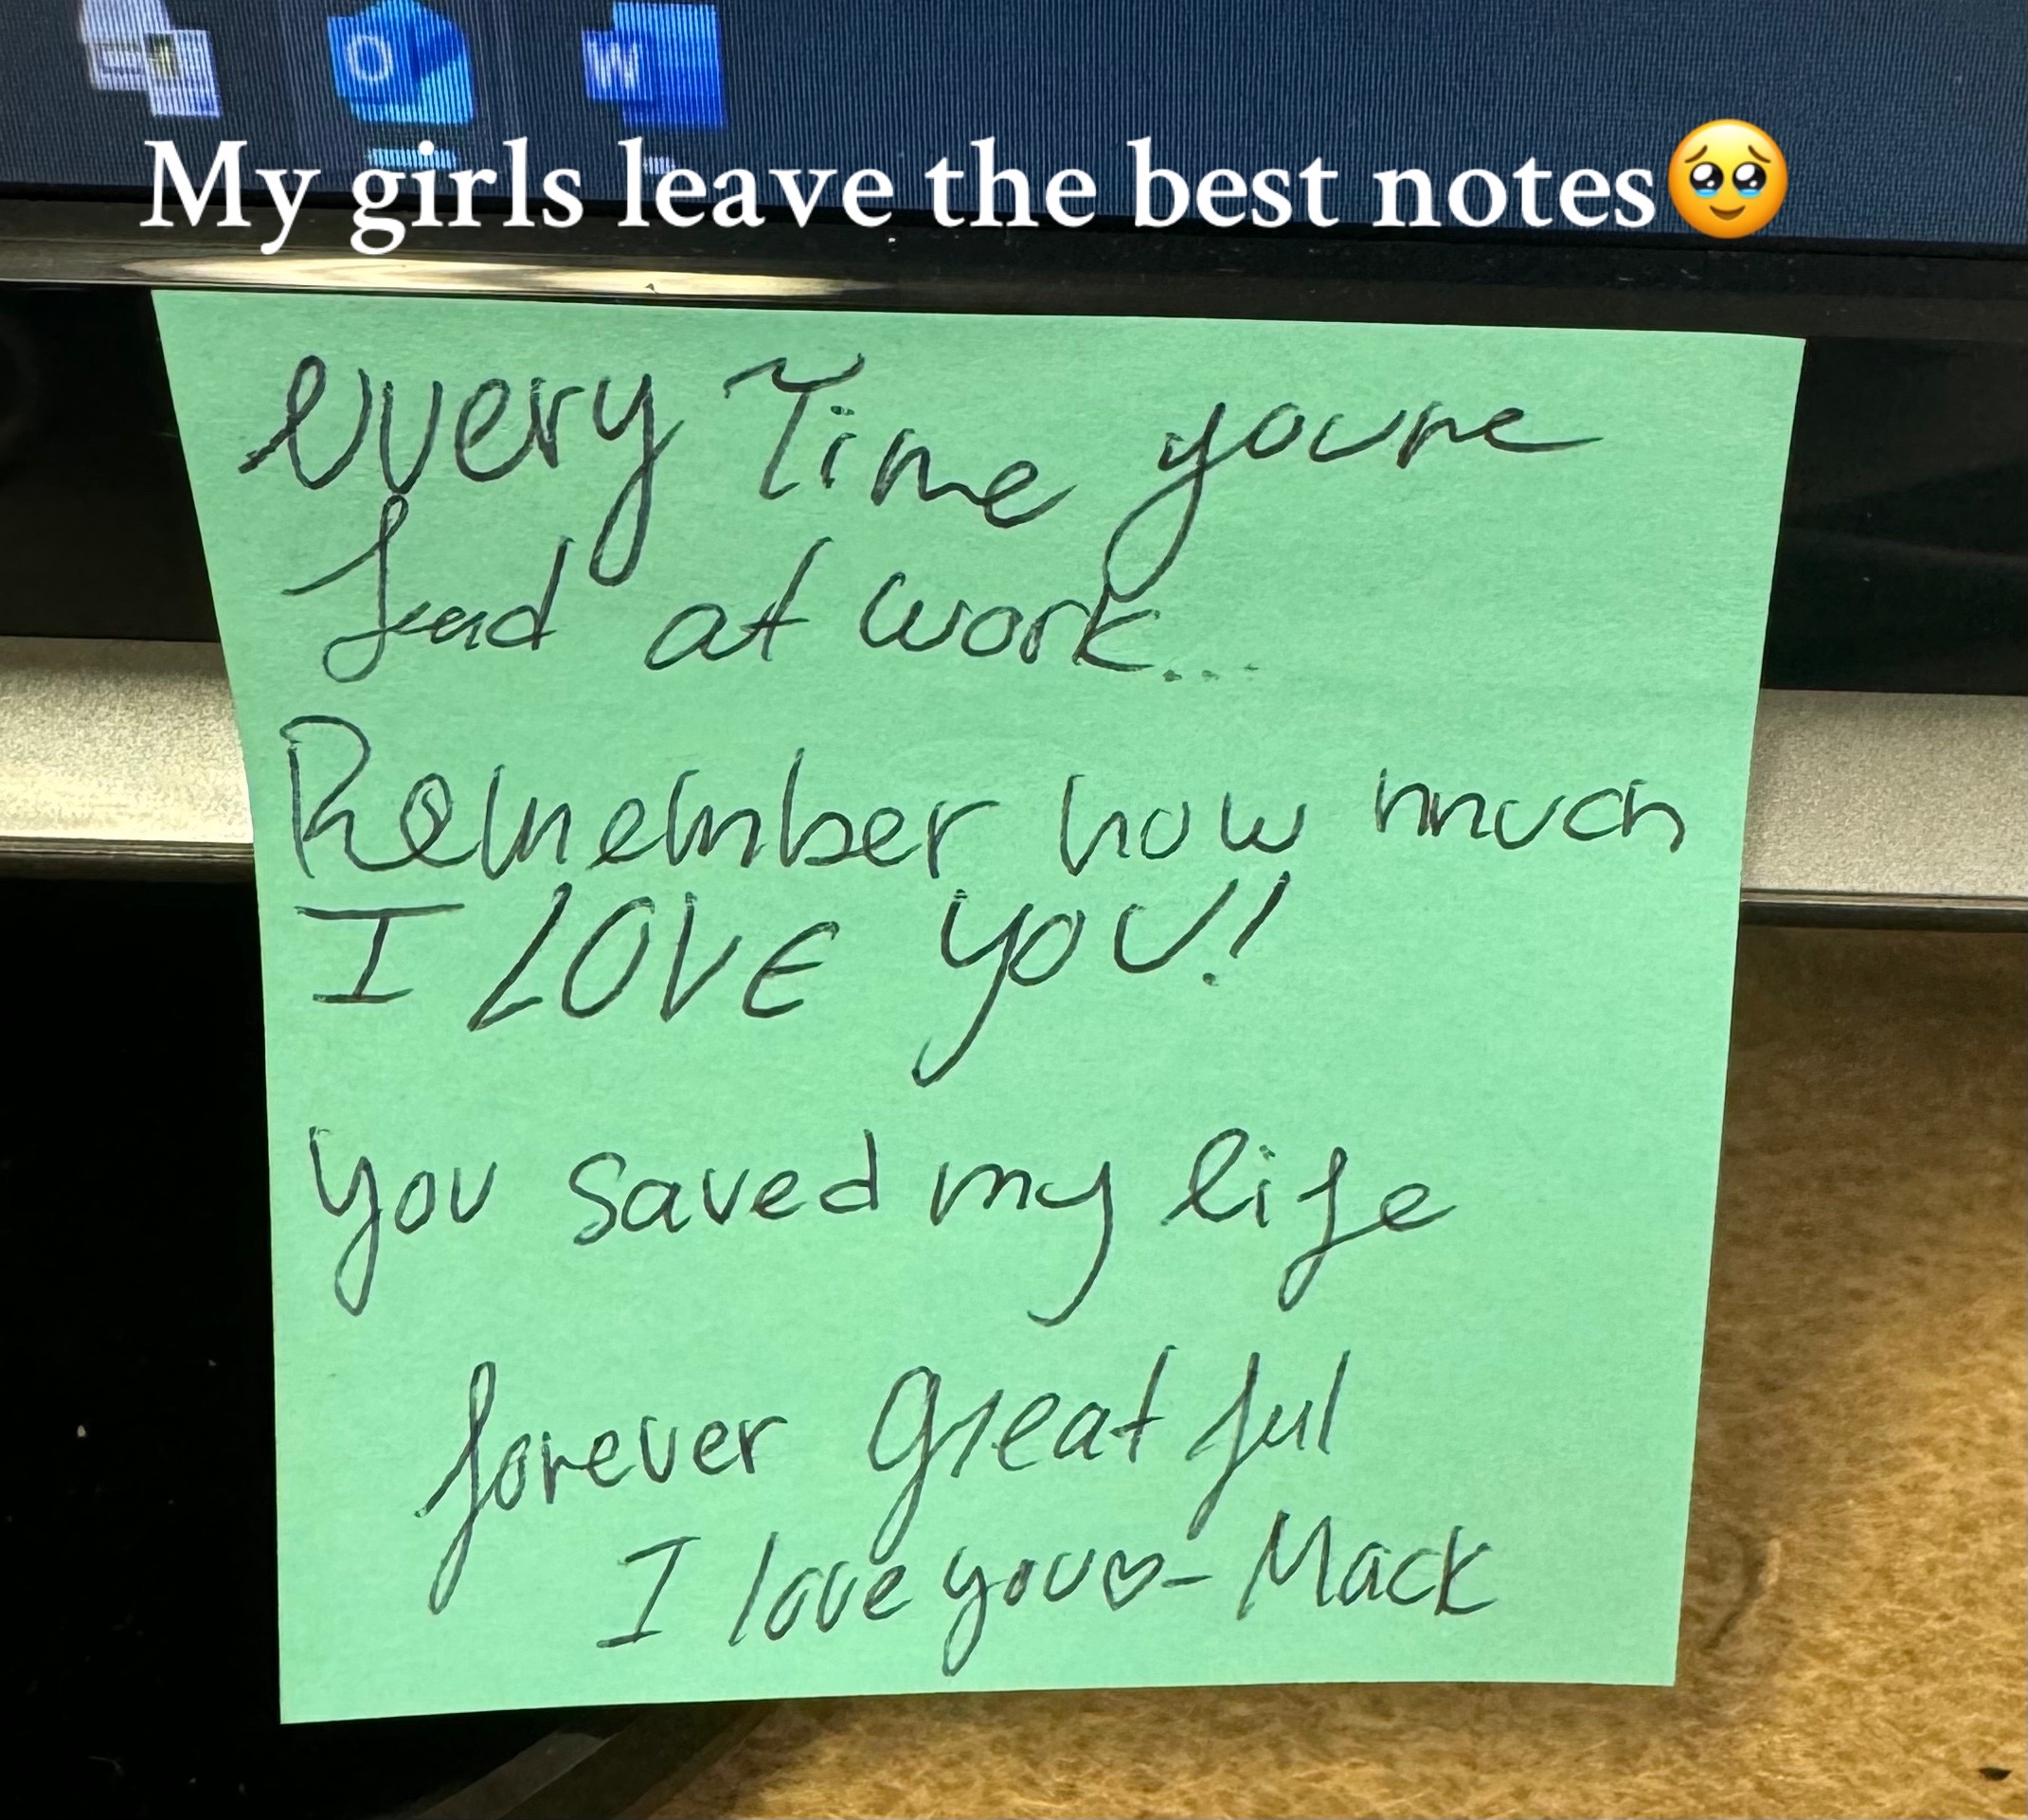 My girls leave the best notes🥹
every Time youre
sad at work...
Remember how much
I LOVE YOU!
you saved my life
forever greatful
I love you♡- Mack